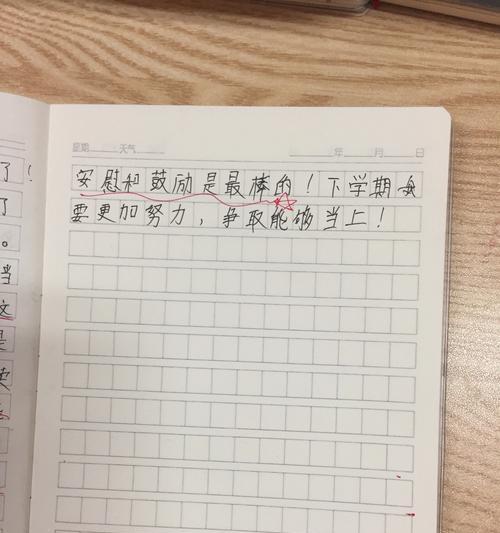 星期 天气 年 月 日
安慰和鼓励是最棒的！下学期
要更加努力，争取能够当上！
了！
了
。
当
文
是